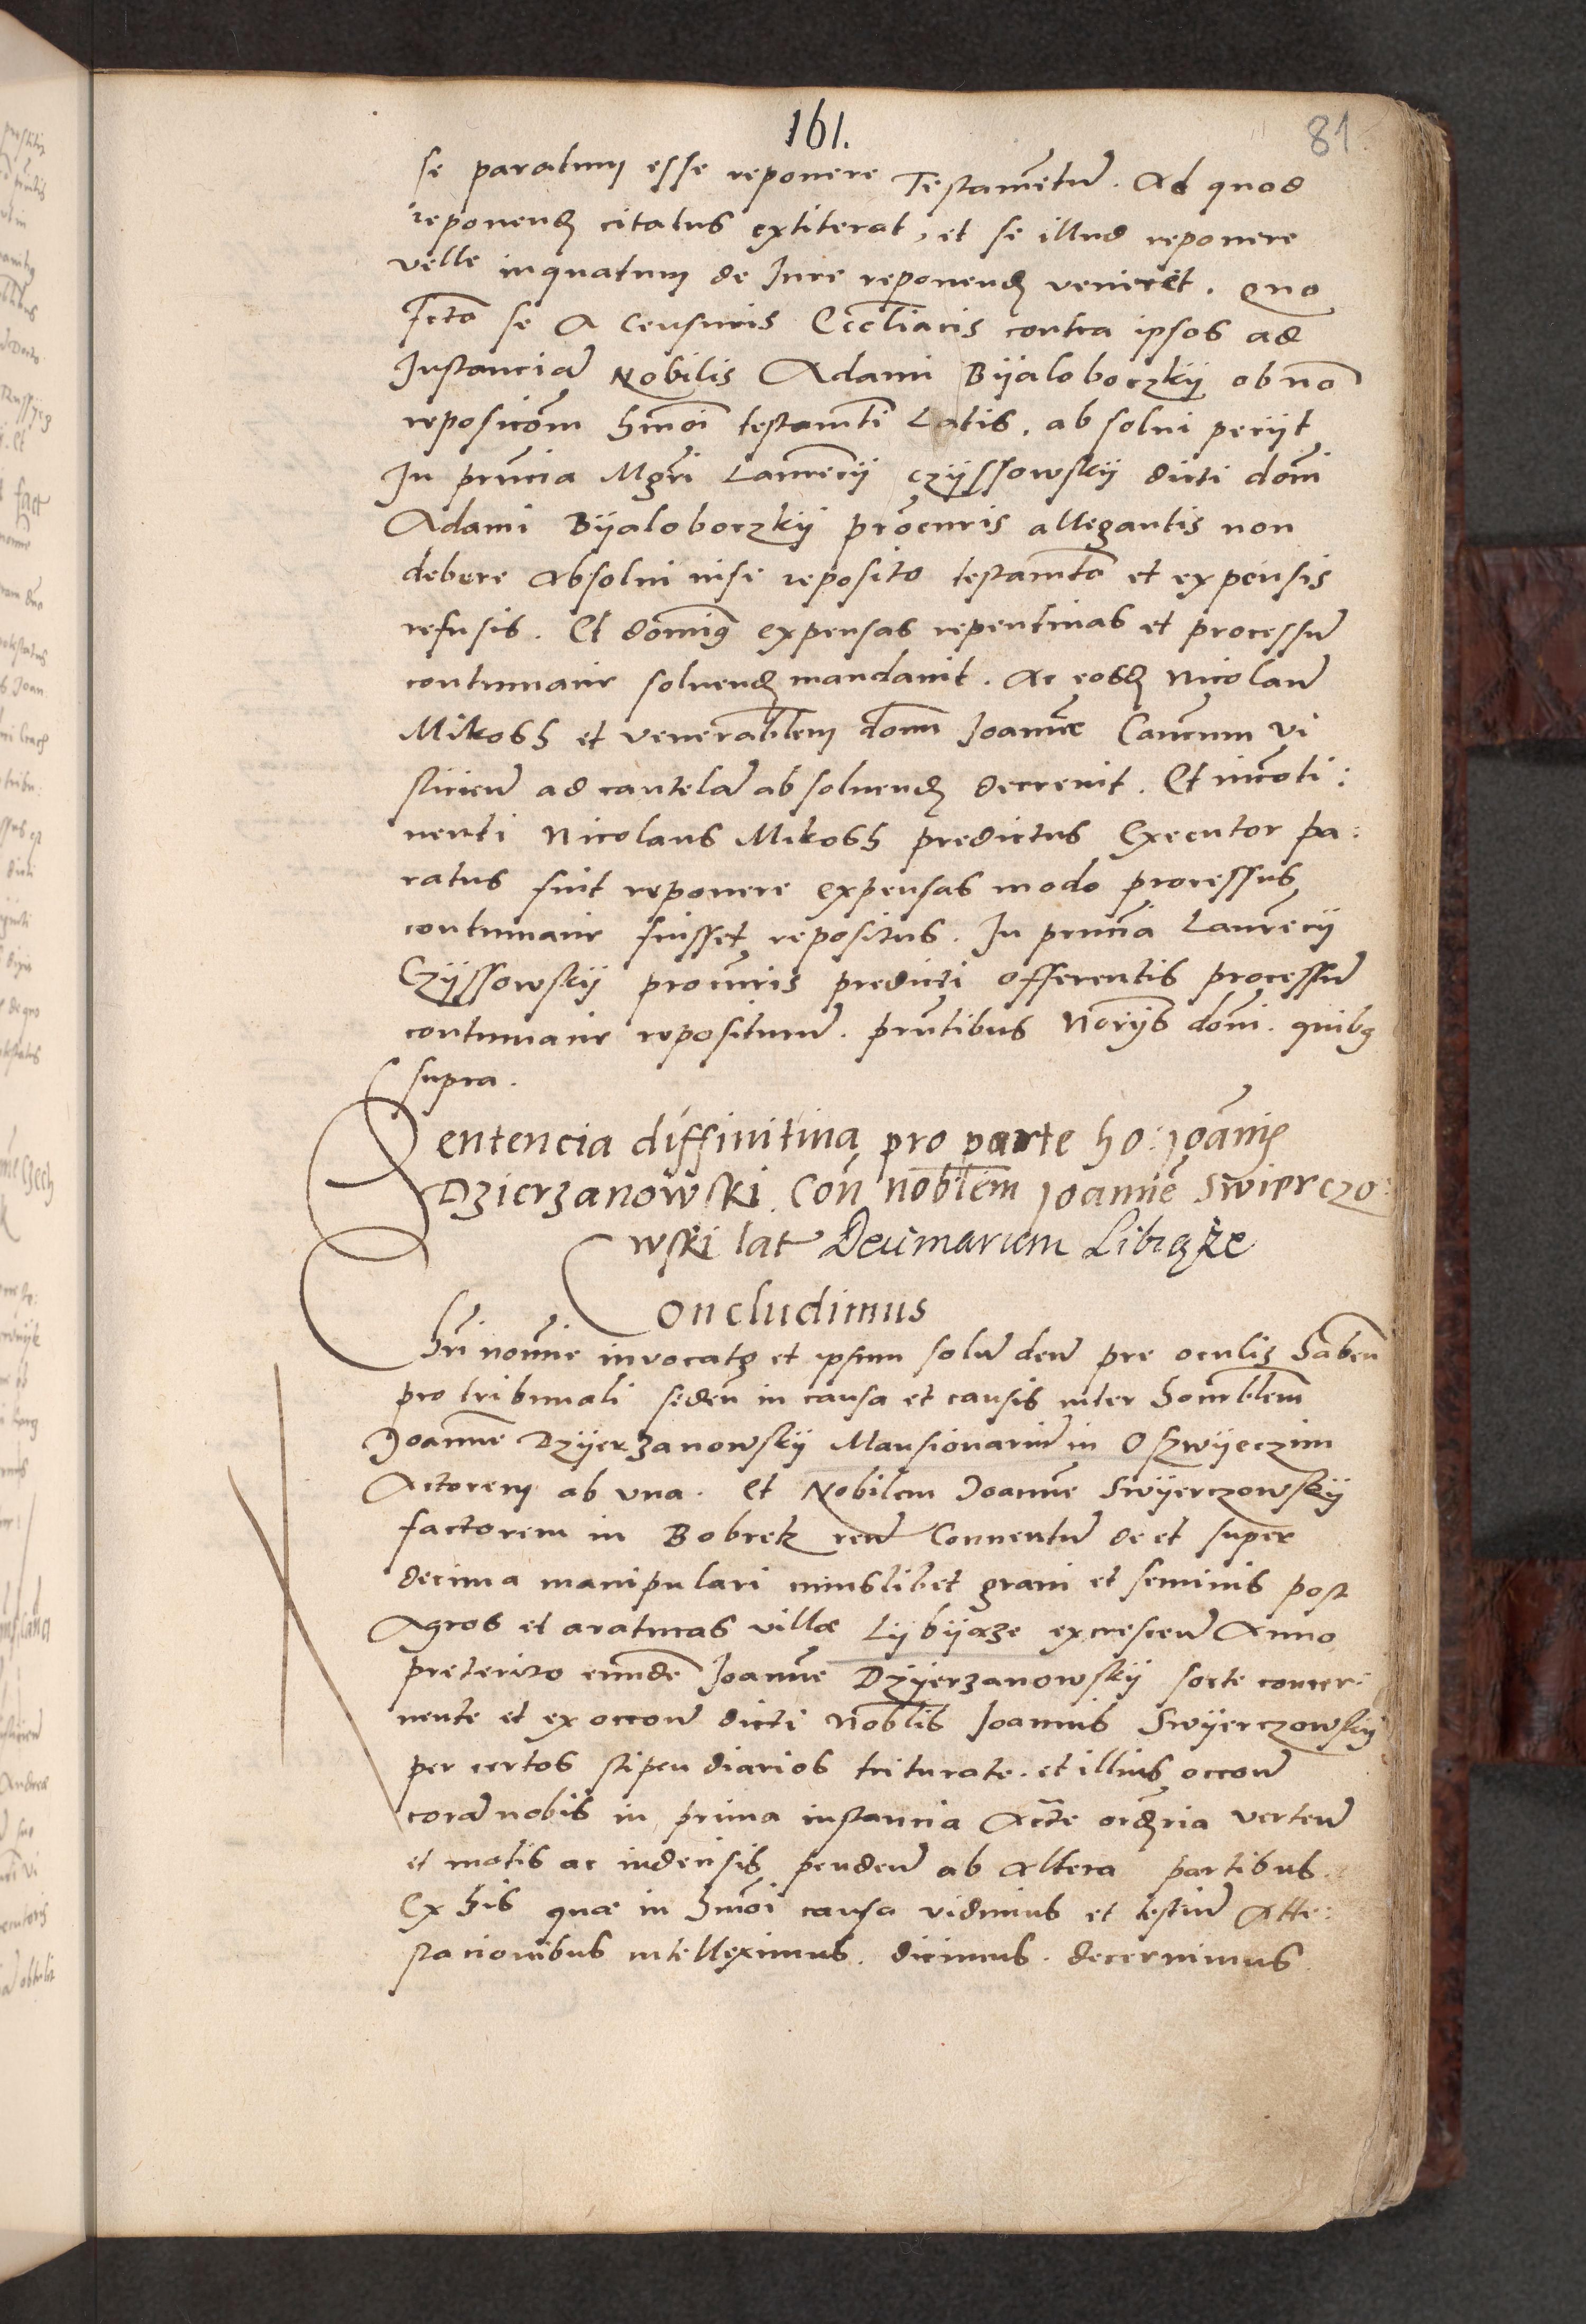 161.
81.
se paratum esse reponere Testamẽtũ. Ad quod
reponend citatus extiterat, et se illud reponere
velle inquatum de Jure reponend veniret. Quo
fcto se A Censuris Eccliacis contra ipsos ad
Instanciã Nobilis Adami Byaloboczky ob nõ
reposicõm hmõi testamti Latis. absolui petijt
In pñcia Mgri Laurecij Czyssowsky dicti domi
Adami Byaloboczky procuris allegantis non
debere absolui nisi reposito testamto et expensis
refusis. Et dominus expensas repentinas et processũ
contumacie soluend mandauit. Ac eosd Nicolaũ
Mikosh et venerablem domĩ Joannẽ Canĉum vi
sticieñ ad cautelã absoluend decreuit. Et incõti:
nenti Nicolaus Mikosh predictus Executor pa:
ratus fuit reponere expensas modo processus
contumacie fuisset repositus. In pñcia Laurecij
Czyssowsky procuris predicti offerentis processũ
contumacie repositurũ. pñtibus Norijs domi. quibus
supra.
Sentencia diffinitiua pro parte ho: Joãnis
Dzierzanowski. Coñ noblem Joannẽ Swierczo:
wski lat Decimarum Libyąże
Concludimus
Chri nomine invocato et ipsum solũ deũ pre oculis habeñ
pro tribunali sedeñ in causa et causis inter honorblem
Joannẽ Dzyerzanowsky Mansionariũ in Oszwyeczim
Actorem ab vna. Et Nobilem Joannẽ Swyerczowsky
factorem in Bobrek reũ Conuentũ de et super
decima manipulari cuiuslibet grani et seminis post
Agros et araturas villæ Lybyąze excresceñ Anno
preterito eundẽ Joannẽ Dzyerzanowsky sorte concer:
nente et ex occoñ dicti Noblis Joannis Swyerczowsky
per certos stipendiarios triturate. et illius occoñ
corã nobis in prima instancia Acte ordria verteñ
et motis ac indecisis pendeñ ab Altera partibus.
Ex his quæ in hmõi causa vidimus et testiũ Atte:
stacionibus intelleximus. dicimus. decernimus